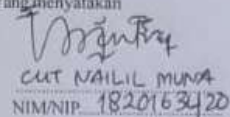 yang menyatakan
CUT NAILIL MUNA
NIM/NIP 1820163420